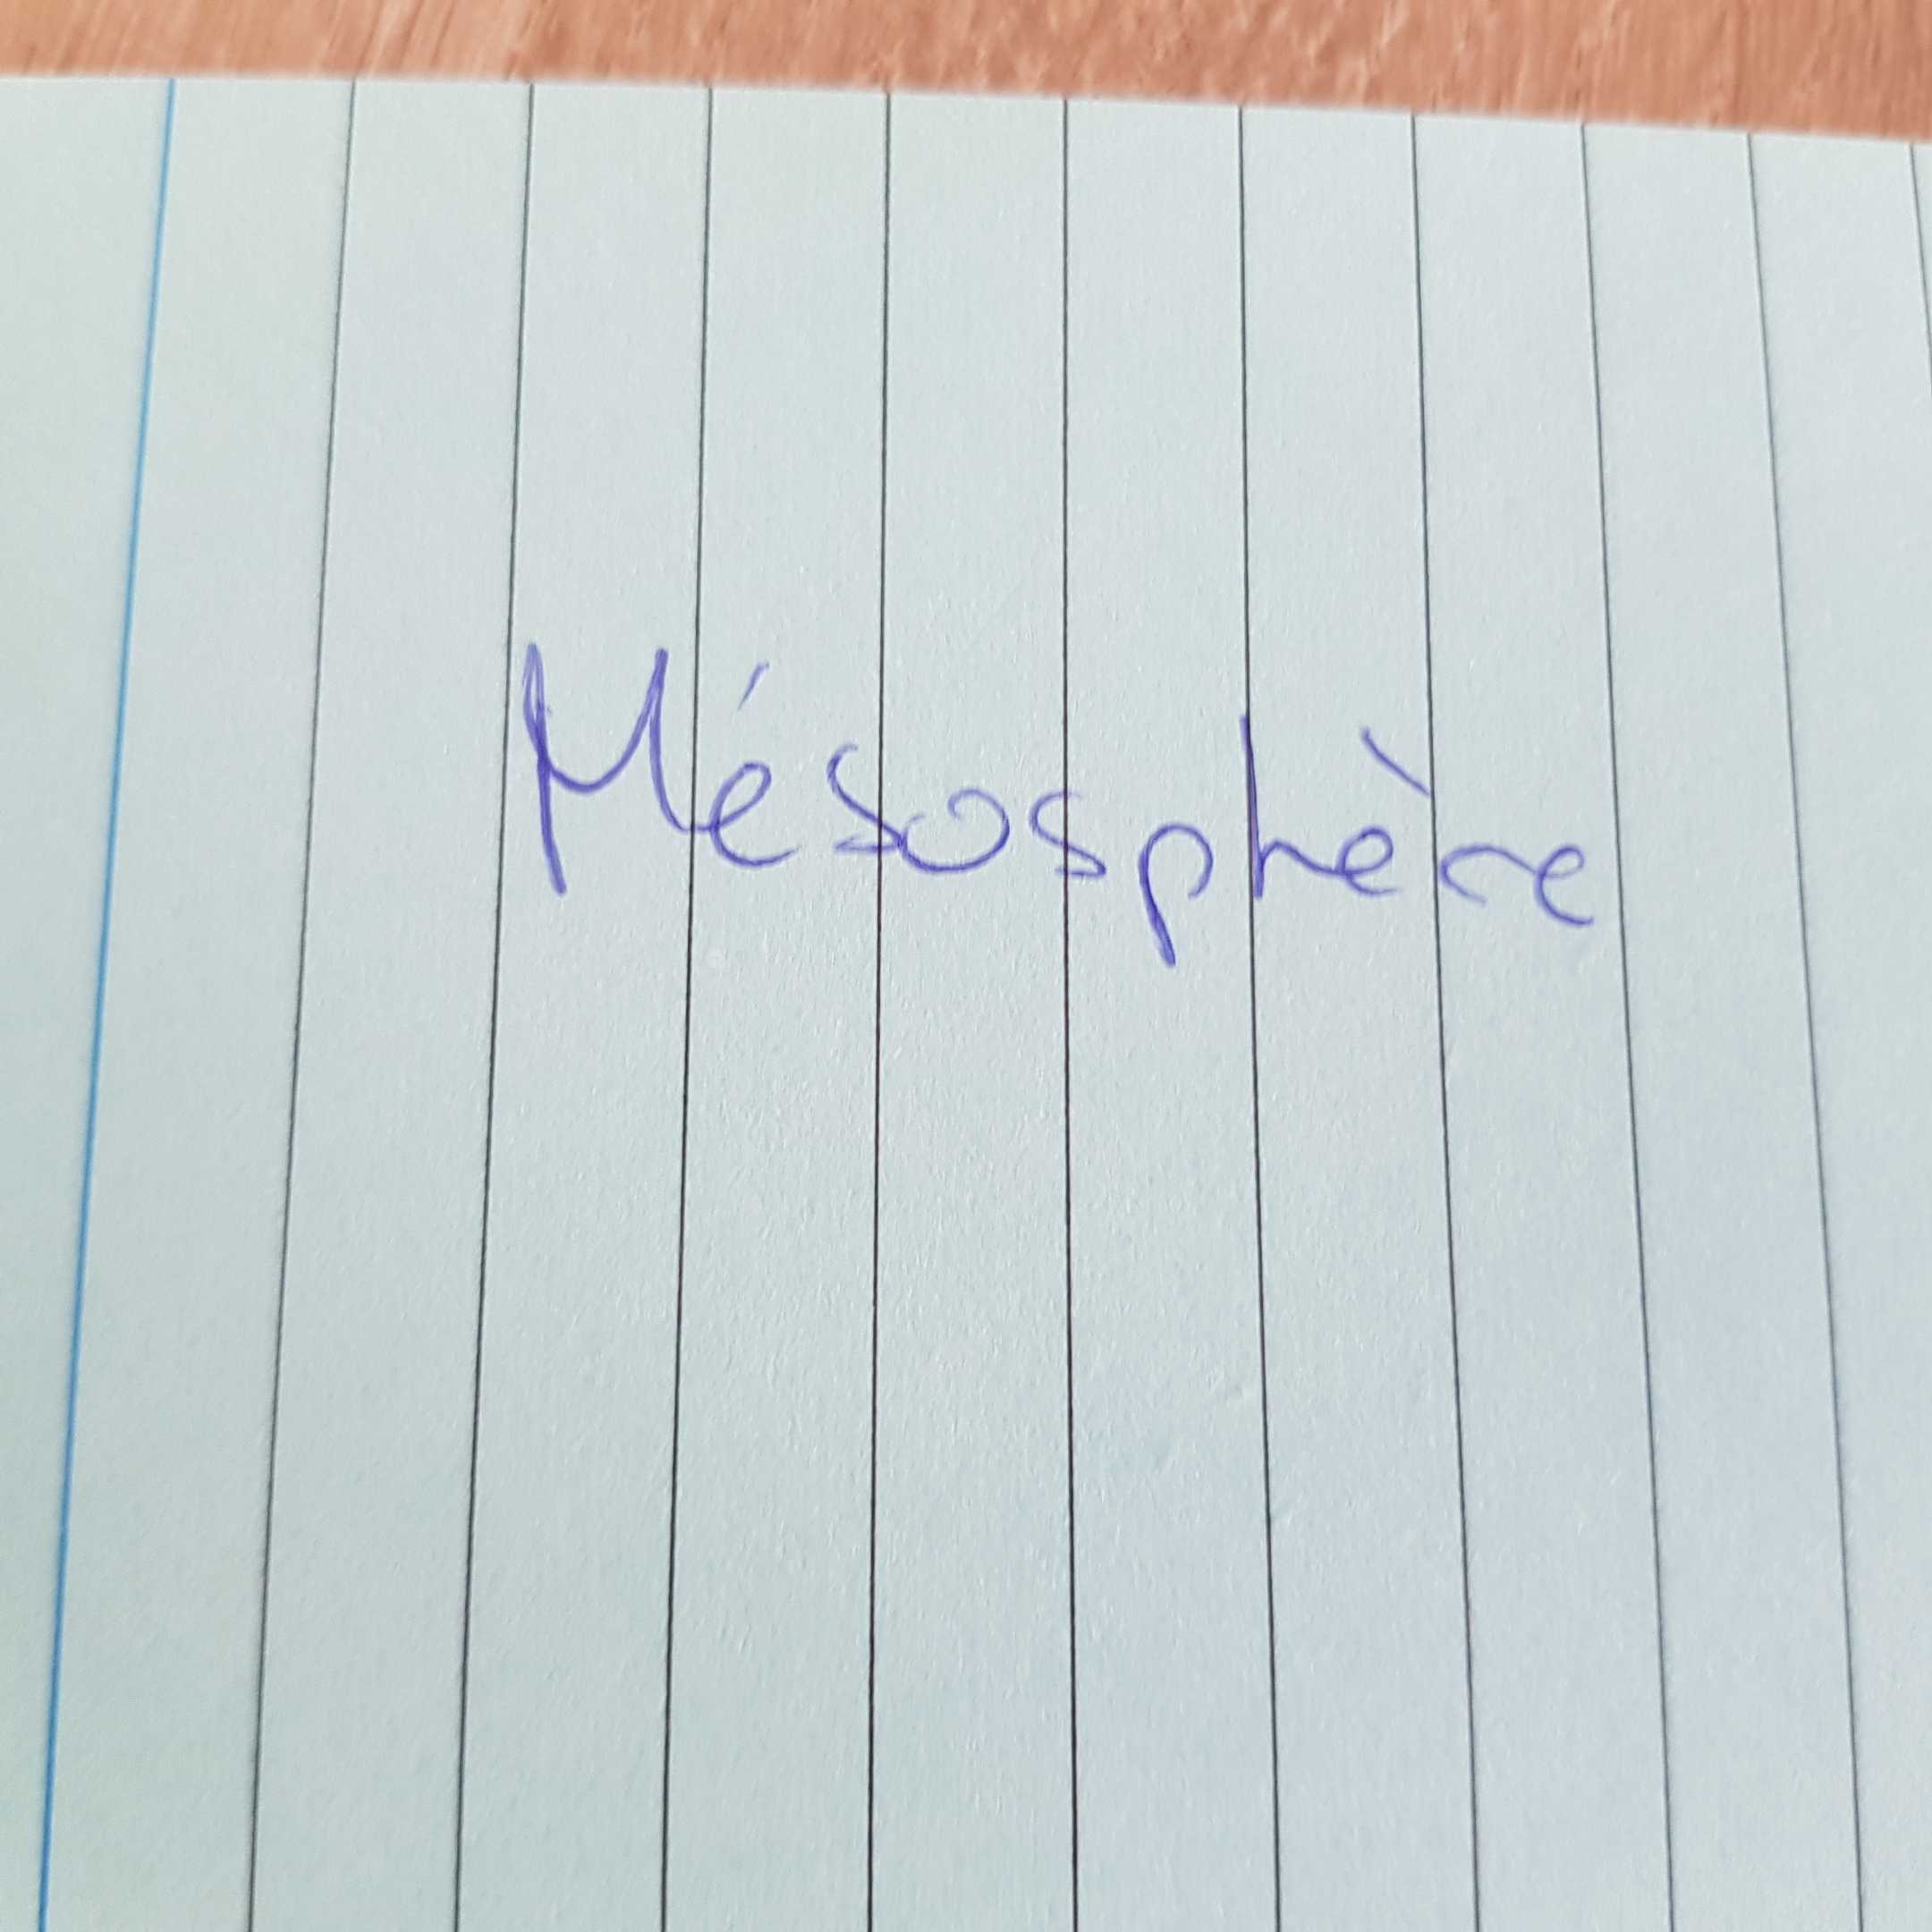 Mésosphère